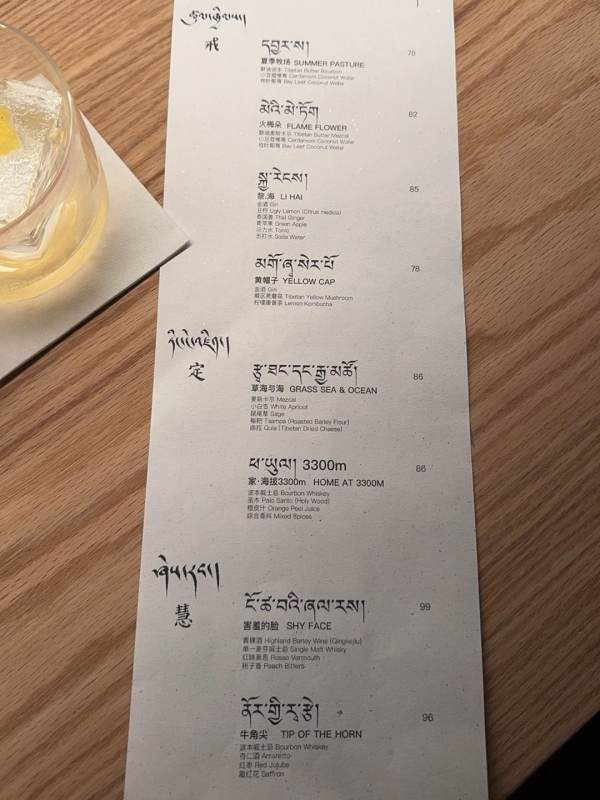 ཚུལ་ཁྲིམས།
戒
དབྱར་ས།
78
夏季牧场 SUMMER PASTURE
酥油波本 Tibetan Butter Bourbon
小豆蔻椰青 Cardamom Coconut Water
桂叶椰青 Bay Leaf Coconut Water
མེའི་མེ་ཏོག
82
火梅朵 FLAME FLOWER
酥油麦斯卡尔 Tibetan Butter Mezcal
小豆蔻椰青 Cardamom Coconut Water
桂叶椰青 Bay Leaf Coconut Water
སྐྱ་རེངས།
85
黎.海 LI HAI
金酒 Gin
丑柠 Ugly Lemon (Citrus medica)
泰国姜 Thai Ginger
青苹果 Green Apple
汤力水 Tonic
苏打水 Soda Water
མགོ་ཞྭ་སེར་པོ
78
黄帽子 YELLOW CAP
金酒 Gin
藏区黄蘑菇 Tibetan Yellow Mushroom
柠檬康普茶 Lemon Kombucha
ཏིང་ངེ་འཛིན།
定
རྩྭ་ཐང་དང་རྒྱ་མཚོ།
86
草海与海 GRASS SEA & OCEAN
麦斯卡尔 Mezcal
小白杏 White Apricot
鼠尾草 Sage
糌粑 Tsampa (Roasted Barley Flour)
曲拉 Qula (Tibetan Dried Cheese)
ཕ་ཡུལ། 3300m
86
家·海拔3300m HOME AT 3300M
波本威士忌 Bourbon Whiskey
圣木 Palo Santo (Holy Wood)
橙皮汁 Orange Peel Juice
综合香料 Mixed Spices
ཤེས་རབ།
慧
ངོ་ཚ་བའི་ཞལ་རས།
99
害羞的脸 SHY FACE
青稞酒 Highland Barley Wine (Qingkejiu)
单一麦芽威士忌 Single Malt Whisky
红味美思 Rosso Vermouth
桃子苦 Peach Bitters
ནོར་གྱི་རྭ་རྩེ།
96
牛角尖 TIP OF THE HORN
波本威士忌 Bourbon Whiskey
杏仁酒 Amaretto
红枣 Red Jujube
藏红花 Saffron